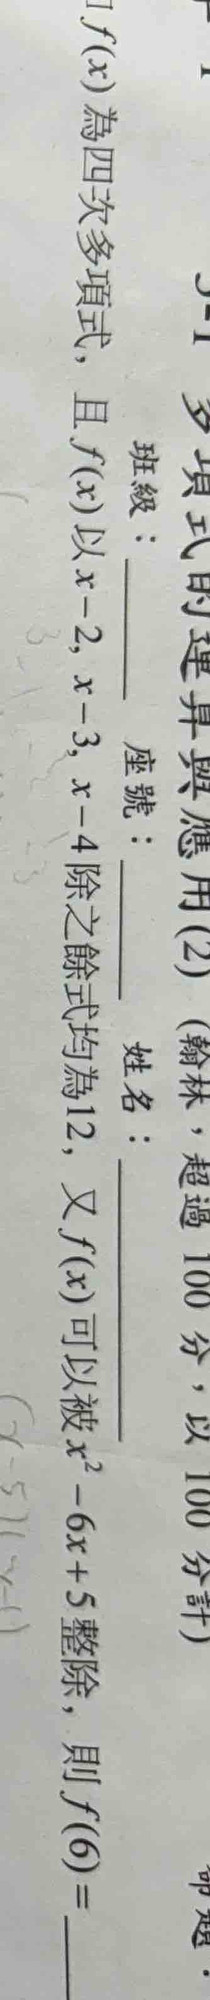 3-1 多項式的運算與應用(2) (翰林，超過 100 分，以 100 分計)
班級：______ 座號：______ 姓名：____________
f(x) 為四次多項式，且 f(x) 以 x－2, x－3, x－4 除之餘式均為12，又 f(x) 可以被 x²－6x＋5 整除，則 f(6)＝____
(x-5)(x-1)